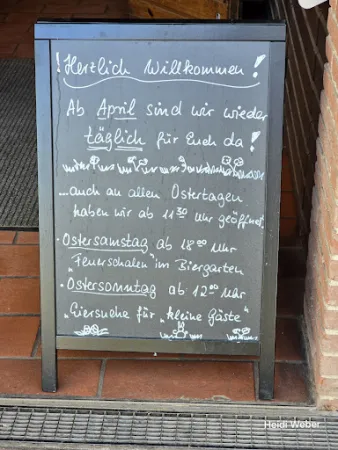 ! Herzlich Willkommen !
Ab April sind wir wieder
täglich für Euch da !
...auch an allen Ostertagen
haben wir ab 11 30 Uhr geöffnet
• Ostersamstag ab 18 00 Uhr
"Feuerschalen" im Biergarten
• Ostersonntag ab 12 00 Uhr
"Eiersuche für "kleine Gäste"
Heidi Weber
Heidi Weber